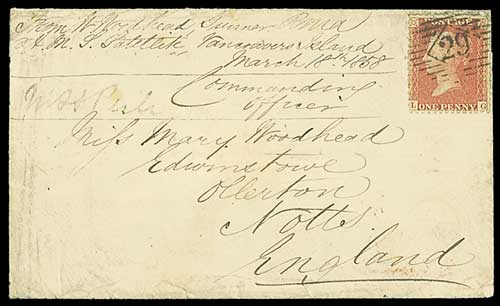 From W. Woodhead, Gunner RMA
H.M.S. Satellite, Vancouvers Island
March 18th/1858
Commanding
Officer
Miss Mary Woodhead
Edwinstowe
Ollerton
Notts
England
POSTAGE
29
L G
ONE PENNY